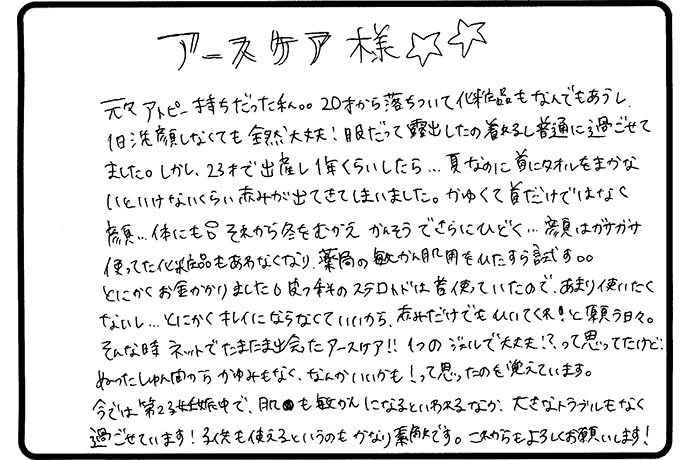 アースケア様☆☆
元々アトピー持ちだった私。。20才から落ちついて化粧品もなんでもあうし
1日洗顔しなくても全然大丈夫！服だって露出したの着れるし普通に過ごせて
ました。しかし、23才で出産し1年くらいしたら…夏なのに首にタオルをまかな
いといけないくらい赤みが出てきてしまいました。かゆくて首だけではなく
顔…体にも。それから冬をむかえかんそうでさらにひどく…顔はガサガサ
使ってた化粧品もあわなくなり、薬局の敏かん肌用をひたすら試す。。
とにかくお金かかりました。皮フ科のステロイドは昔使っていたので、あまり使いたく
ないし…とにかくキレイにならなくていいから、赤みだけでもひいてくれ！と願う日々。
そんな時ネットでたまたま出会たアースケア!! 1つのジェルで大丈夫！？って思ってたけど、
ぬったしゅん間からかゆみもなく、なんかいいかも！って思ったのを覚えています。
今では第2子妊娠中で、肌も敏かんになるといわれるなか、大きなトラブルもなく
過ごせています！子供も使えるというのもかなり素敵です。これからもよろしくお願いします！